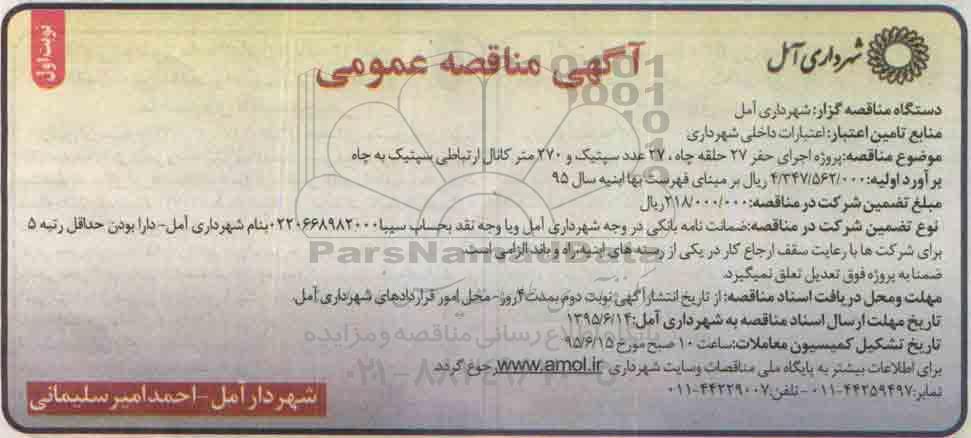 شهرداری آمل
نوبت اول
آگهی مناقصه عمومی
دستگاه مناقصه گزار: شهرداری آمل
منابع تامین اعتبار: اعتبارات داخلی شهرداری
موضوع مناقصه: پروژه اجرای حفر ۲۷ حلقه چاه، ۲۷ عدد سپتیک و ۲۷۰ متر کانال ارتباطی سپتیک به چاه
برآورد اولیه: ۴/۳۴۷/۵۶۲/۰۰۰ ریال بر مبنای فهرست بها ابنیه سال ۹۵
مبلغ تضمین شرکت در مناقصه: ۲۱۸/۰۰۰/۰۰۰ ریال
نوع تضمین شرکت در مناقصه: ضمانت نامه بانکی در وجه شهرداری آمل ویا وجه نقد بحساب سیبا ۰۲۲۰۶۶۸۹۸۲۰۰۰ بنام شهرداری آمل- دارا بودن حداقل رتبه ۵
برای شرکت ها با رعایت سقف ارجاع کار در یکی از رسته های ابنیه، راه و باند الزامی است.
ضمنا به پروژه فوق تعدیل تعلق نمیگیرد.
مهلت ومحل دریافت اسناد مناقصه: از تاریخ انتشار آگهی نوبت دوم بمدت ۴ روز- محل امور قراردادهای شهرداری آمل.
تاریخ مهلت ارسال اسناد مناقصه به شهرداری آمل: ۱۳۹۵/۶/۱۴
تاریخ تشکیل کمیسیون معاملات: ساعت ۱۰ صبح مورخ ۹۵/۶/۱۵
برای اطلاعات بیشتر به پایگاه ملی مناقصات وسایت شهرداری www.amol.ir رجوع گردد
نمابر: ۴۴۲۵۹۴۹۷-۰۱۱ - تلفن: ۴۴۲۲۹۰۰۷-۰۱۱
شهردار آمل - احمد امیر سلیمانی
ParsNamadData
پایگاه اطلاع رسانی مناقصه و مزایده